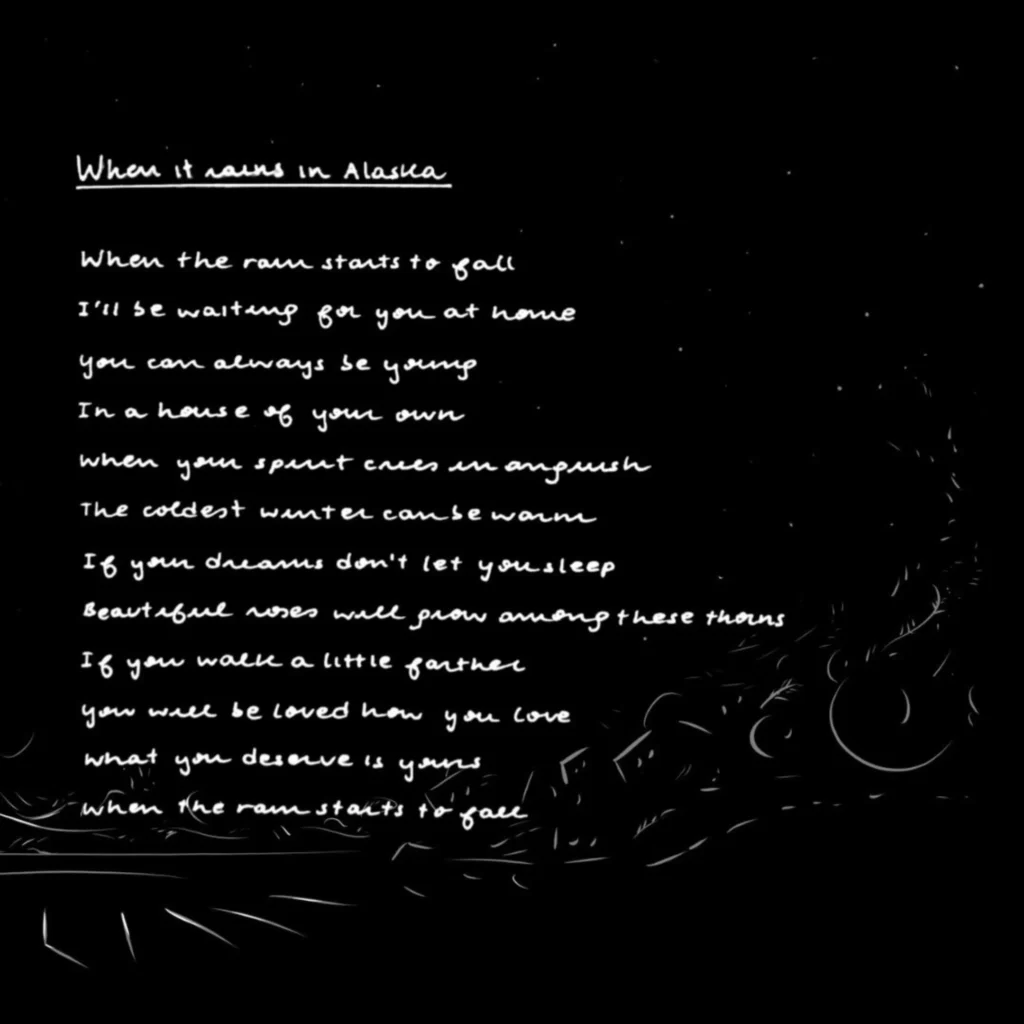 When it rains in Alaska
When the rain starts to fall
I'll be waiting for you at home
you can always be young
In a house of your own
when your spirit cries in anguish
The coldest winter can be warm
If your dreams don't let you sleep
Beautiful roses will grow among these thorns
If you walk a little farther
you will be loved how you love
what you deserve is yours
when the rain starts to fall